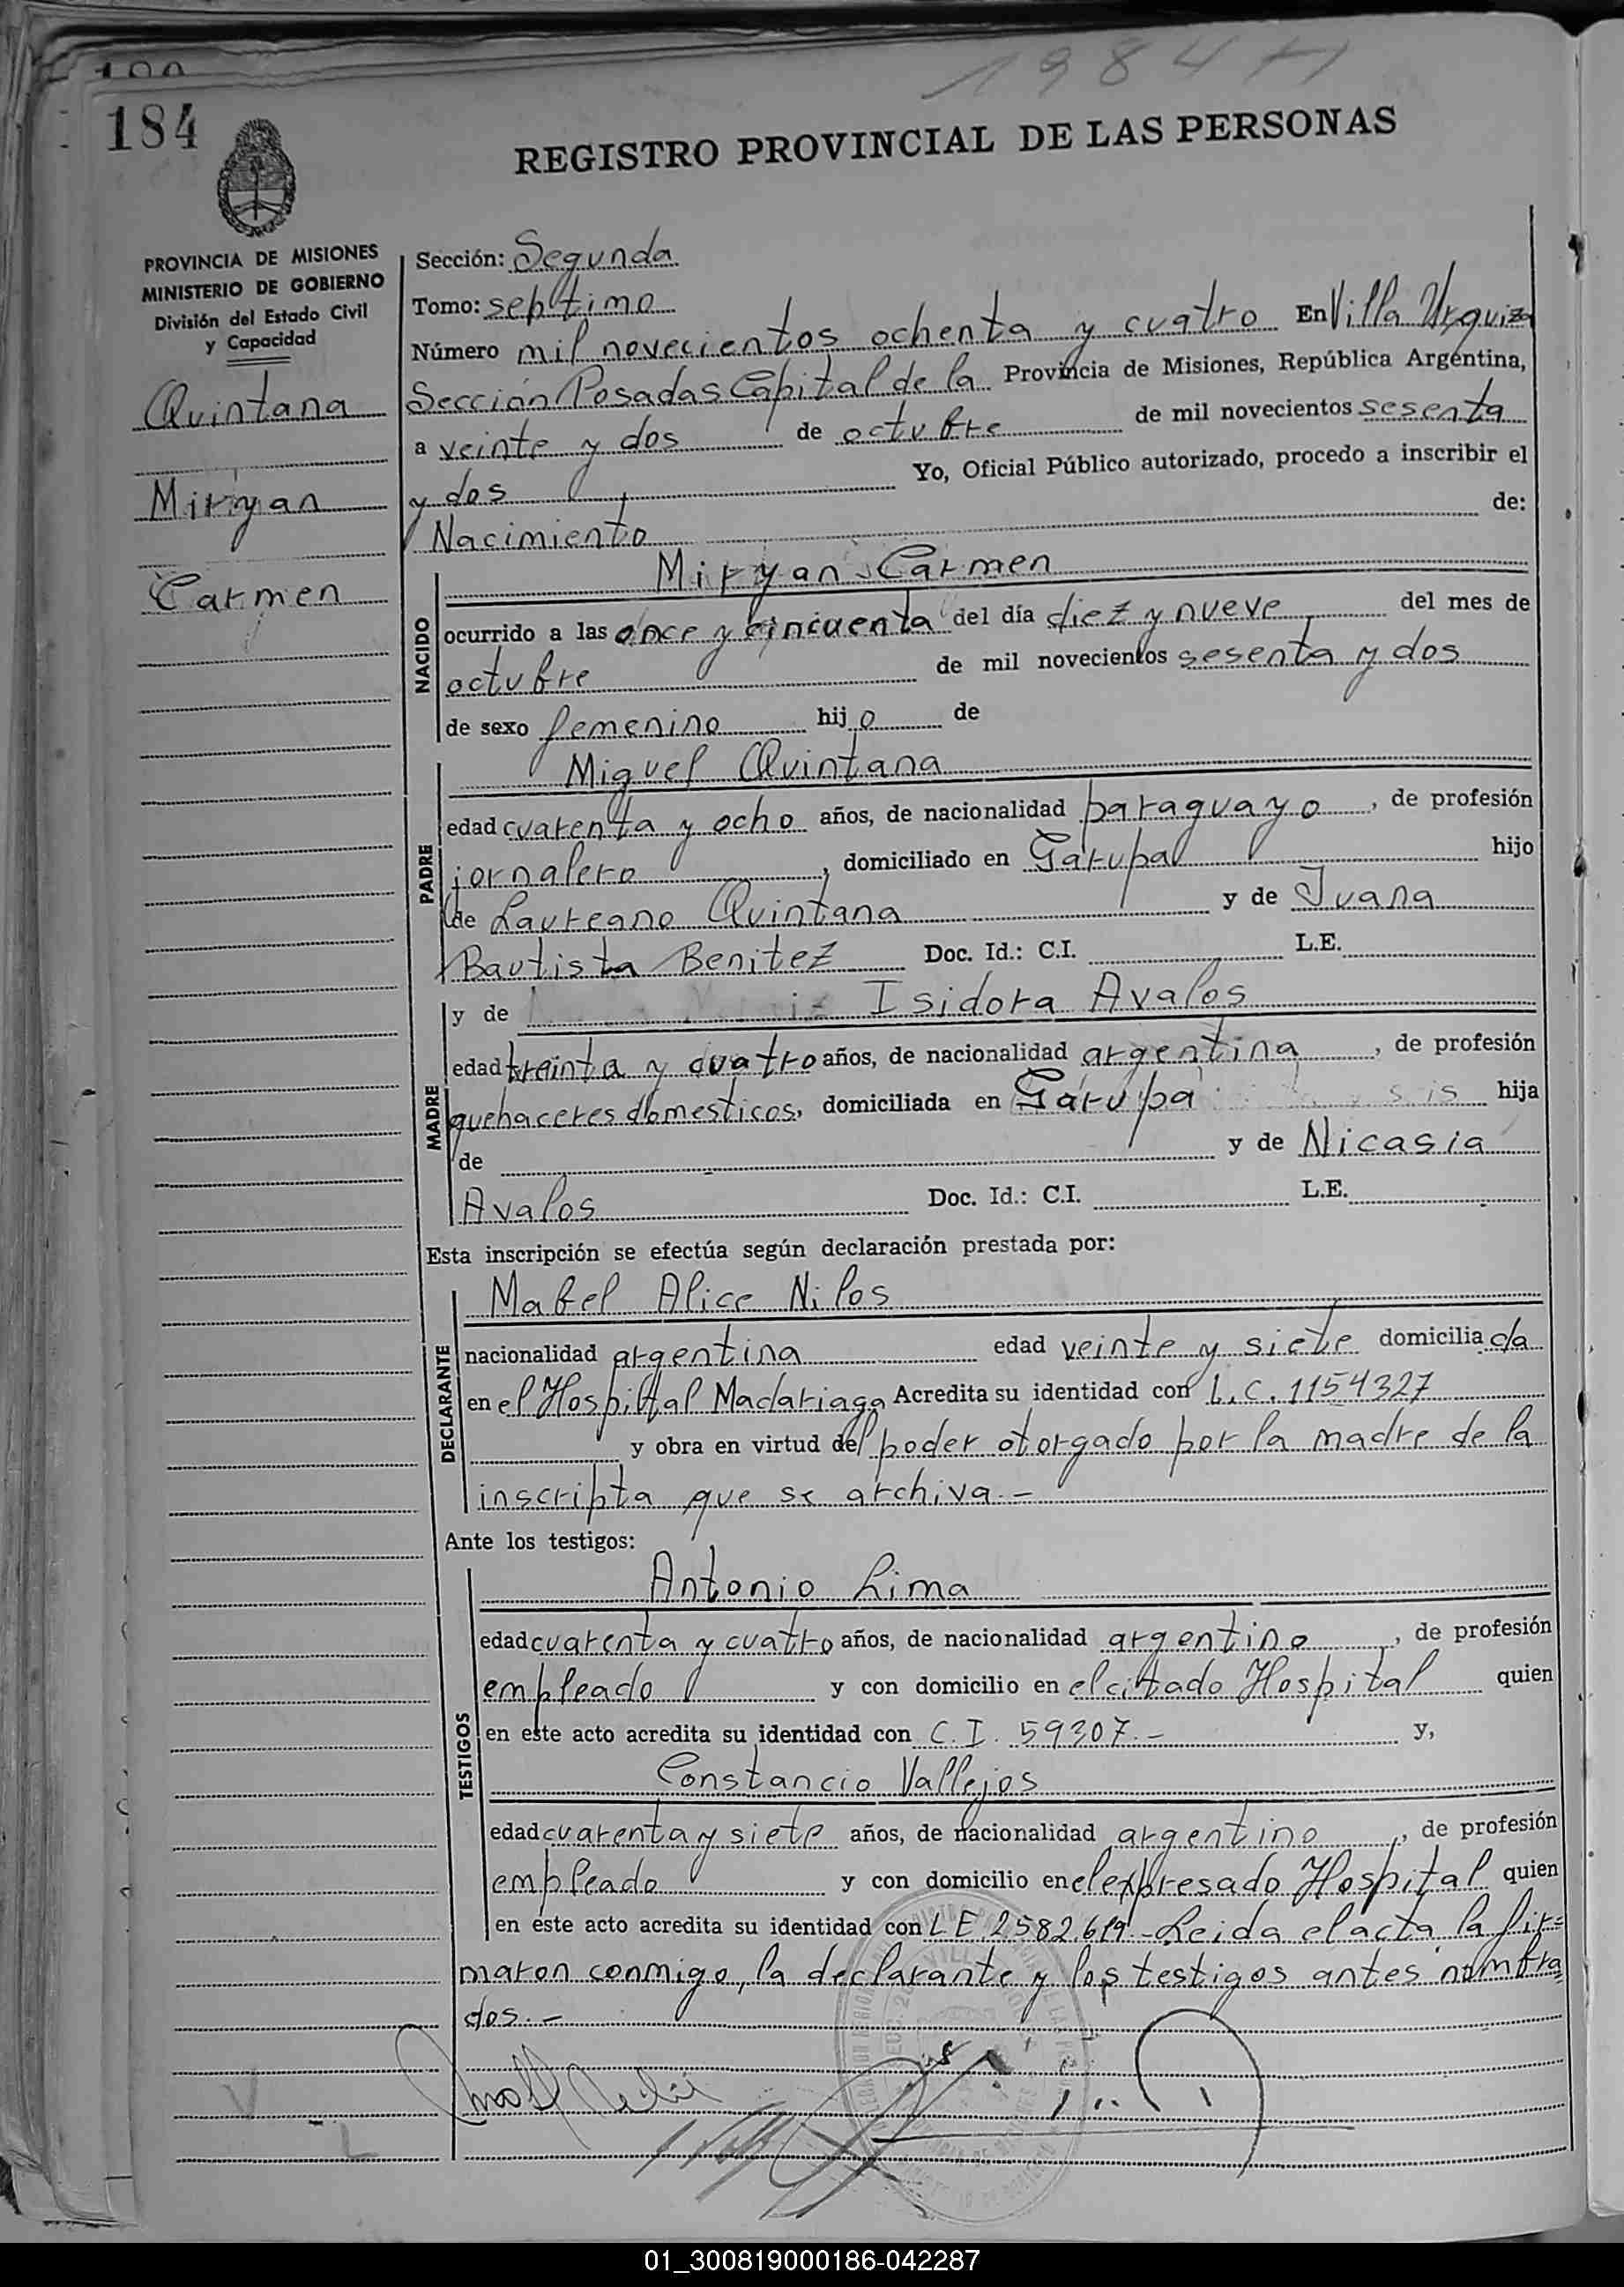 1984 H
184
REGISTRO PROVINCIAL DE LAS PERSONAS
PROVINCIA DE MISIONES
MINISTERIO DE GOBIERNO
División del Estado Civil
y Capacidad
Quintana
Miryan
Carmen
Sección: Segunda
Tomo: septimo
Número mil novecientos ochenta y cuatro En Villa Urquiza
Sección Posadas Capital de la Provincia de Misiones, República Argentina,
a veinte y dos de octubre de mil novecientos sesenta
y dos Yo, Oficial Público autorizado, procedo a inscribir el
Nacimiento de:
NACIDO
Miryan Carmen
ocurrido a las once y cincuenta del día diez y nueve del mes de
octubre de mil novecientos sesenta y dos
de sexo femenino hijo de
PADRE
Miguel Quintana
edad cuarenta y ocho años, de nacionalidad paraguayo, de profesión
jornalero, domiciliado en Garupa hijo
de Laureano Quintana y de Juana
Bautista Benitez Doc. Id.: C.I. L.E.
MADRE
y de Isidora Avalos
edad treinta y cuatro años, de nacionalidad argentina, de profesión
quehaceres domesticos, domiciliada en Garupa hija
de y de Nicasia
Avalos Doc. Id.: C.I. L.E.
Esta inscripción se efectúa según declaración prestada por:
DECLARANTE
Mabel Alice Nilos
nacionalidad argentina edad veinte y siete domiciliada
en el Hospital Madariaga Acredita su identidad con L.C. 1154327
y obra en virtud del poder otorgado por la madre de la
inscripta que se archiva.-
Ante los testigos:
TESTIGOS
Antonio Lima
edad cuarenta y cuatro años, de nacionalidad argentino, de profesión
empleado y con domicilio en el citado Hospital quien
en este acto acredita su identidad con C.I. 59307.- y,
Constancio Vallejos
edad cuarenta y siete años, de nacionalidad argentino, de profesión
empleado y con domicilio en el expresado Hospital quien
en este acto acredita su identidad con LE 2582.619.- Leida el acta, la fir=
maron conmigo, la declarante y los testigos antes nombra
dos.-
01_300819000186-042287